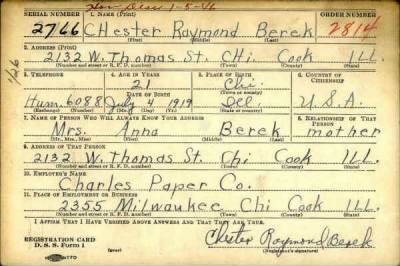 Hon Disc 1-5-46
SERIAL NUMBER 1. NAME (Print) ORDER NUMBER
2766 CHester Raymond Berek 2814
(First) (Middle) (Last)
2. ADDRESS (Print)
2132 W. Thomas St. CHi. Cook ILL.
(Number and street or R. F. D. number) (Town) (County) (State)
126
3. TELEPHONE 4. AGE IN YEARS 5. PLACE OF BIRTH 6. COUNTRY OF CITIZENSHIP
21 Chi.
DATE OF BIRTH (Town or county)
Hum. 6088 July 4 1919 Ill. U.S.A.
(Exchange) (Number) (Mo.) (Day) (Yr.) (State or country)
7. NAME OF PERSON WHO WILL ALWAYS KNOW YOUR ADDRESS 8. RELATIONSHIP OF THAT PERSON
Mrs. Anna Berek mother
(Mr., Mrs., Miss) (First) (Middle) (Last)
9. ADDRESS OF THAT PERSON
2132 W. Thomas St. Chi Cook ILL.
(Number and street or R. F. D. number) (Town) (County) (State)
10. EMPLOYER'S NAME
Charles Paper Co.
11. PLACE OF EMPLOYMENT OR BUSINESS
2355 Milwaukee Chi Cook ILL.
(Number and street or R. F. D. number) (Town) (County) (State)
I AFFIRM THAT I HAVE VERIFIED ABOVE ANSWERS AND THAT THEY ARE TRUE.
REGISTRATION CARD
D. S. S. Form 1 Chester Raymond Berek
(Registrant's signature)